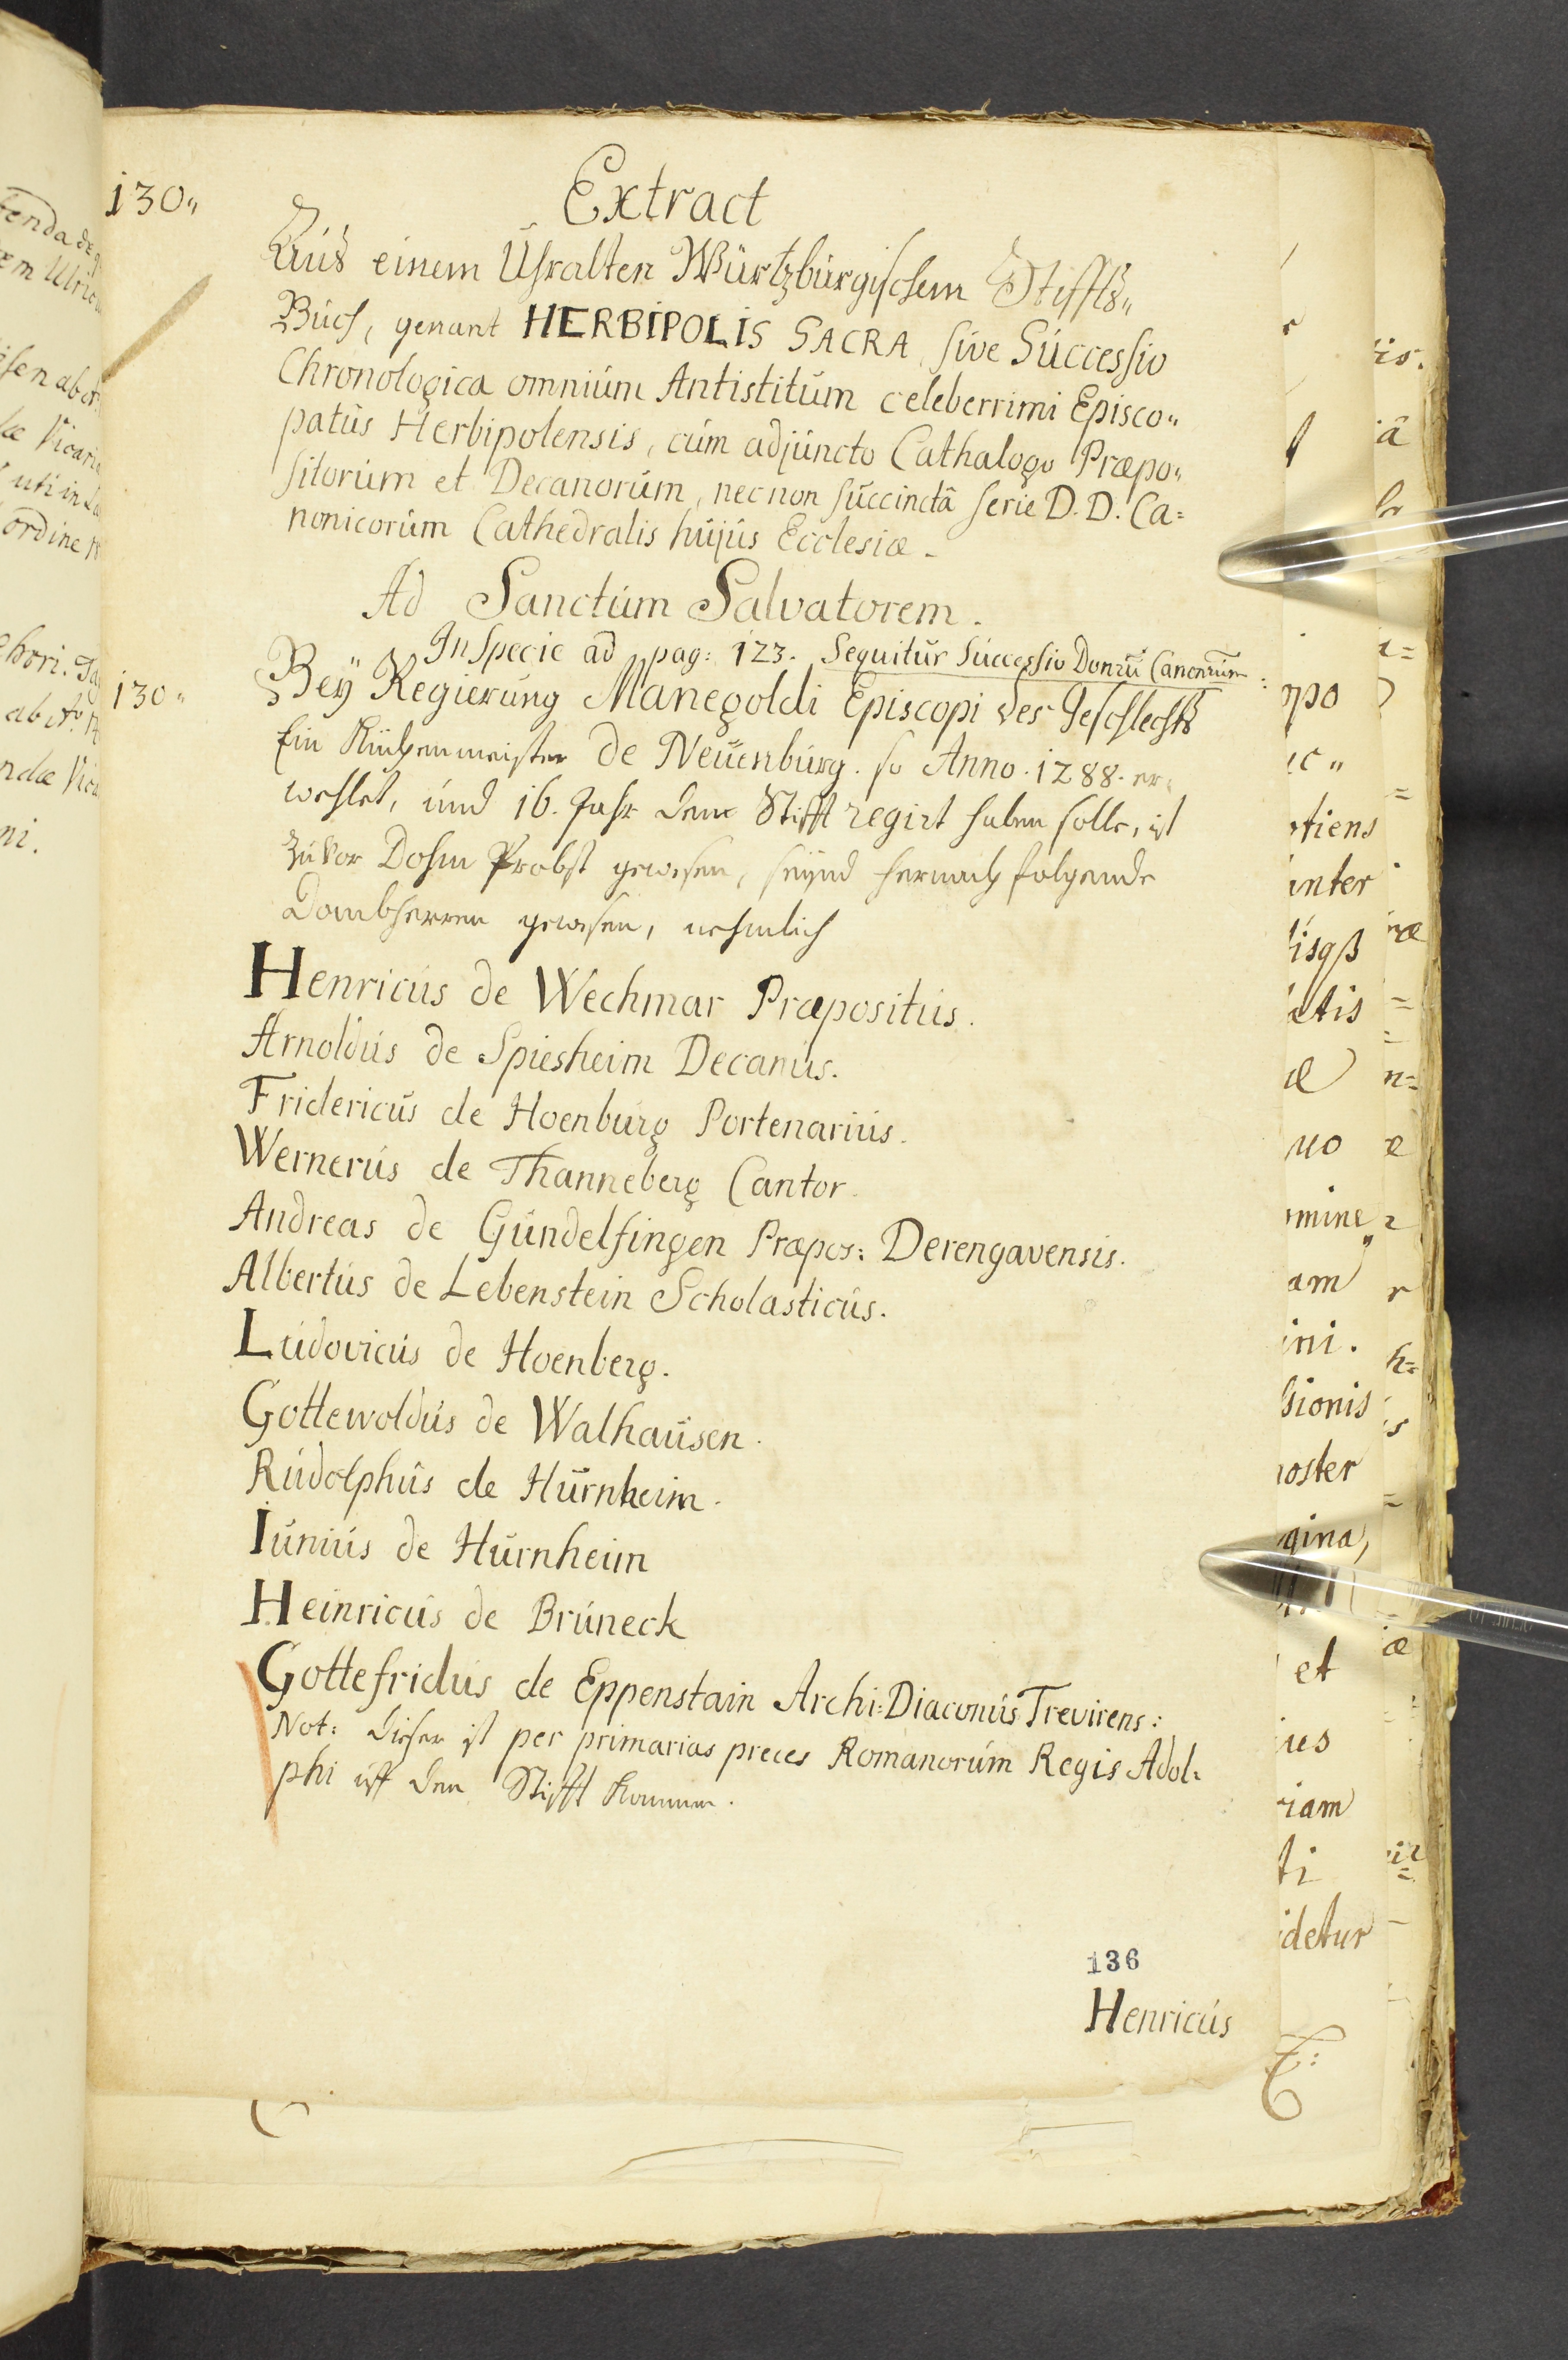 130„
Extract
Auß einem Uhralten Würtzbürgischem Stiffts„
Buch, genant HERBIPOLIS SACRA, sive Successio
Chronologica omnium Antistitum celeberrimi Episco„
patus Herbipolensis, cum adjuncto Cathalogo Præpo„
sitorum et Decanorum, nec non succinctâ serie D. D. Ca=
nonicorum Cathedralis hujus Ecclesiæ.
Ad Sanctum Salvatorem.
In Specie ad pag: 123. Sequitur Successio Canonrum
130„
Beÿ Regierung Manegoldi Episcopi des Geschlechts
Ein Küchenmeister de Neuenburg. so Anno. 1288. er„
wehlet, und 16. Jahr dem Stifft regirt haben solle, ist
zuvor Dohm Probst gewesen, seÿnd hernach folgende
Dombherren gewesen, nehmlich
Henricus de Wechmar Præpositus.
Arnoldus de Spiesheim Decanus.
Fridericus de Hoenburg Portenarius.
Wernerus de Thanneberg Cantor.
Andreas de Gundelfingen Præpos: Derengavensis.
Albertus de Lebenstein Scholasticus.
Ludovicus de Hoenberg.
Gottewoldus de Walhausen.
Rudolphus de Hurnheim.
Iunius de Hurnheim
Heinricus de Bruneck
Gottefridus de Eppenstain Archi=Diaconus Trevirens:
Not: dieser ist per primarias preces Romanorum Regis Adol=
phi uff den Stifft kommen.
136
Henricus